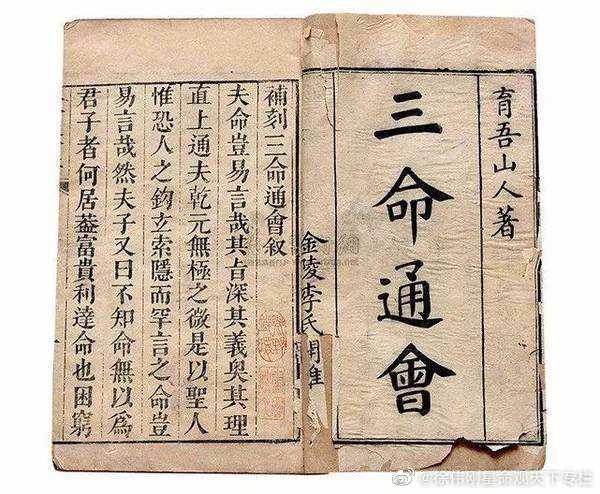 育吾山人著
三命通會
金陵李氏
補刻三命通會叙
夫命豈易言哉其旨深其義奥其理
直上通夫乾元無極之微是以聖人
惟恐人之鈎玄索隱而罕言之命豈
易言哉然夫子又曰不知命無以為
君子者何居葢富貴利達命也困窮
@徐伟刚星命观天下专栏